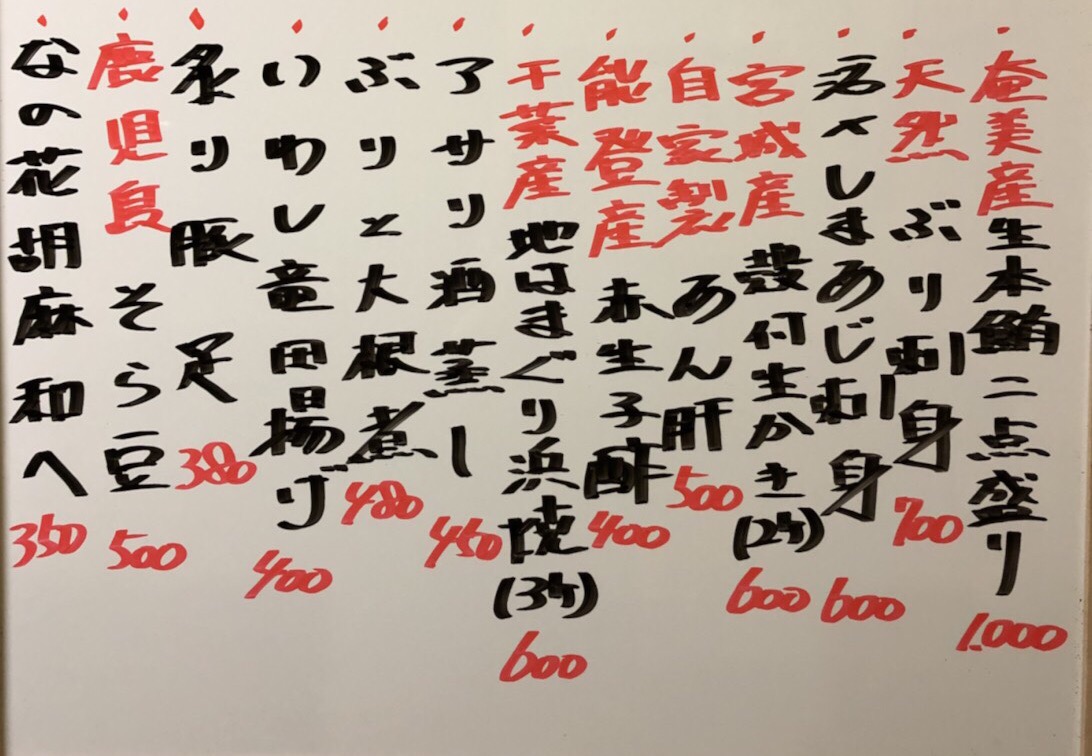 奄美産生本鮪二点盛り 1.000
天然ぶり刺身 700
〆しまあじ刺身 600
宮城産殻付生かき(2ケ) 600
自家製あん肝 500
能登産赤生子酢 400
千葉産地はまぐり浜焼(3ケ) 600
アサリ酒蒸し 450
ぶりと大根煮 480
いわし竜田揚げ 400
炙り豚足 380
鹿児島そら豆 500
なの花胡麻和へ 350